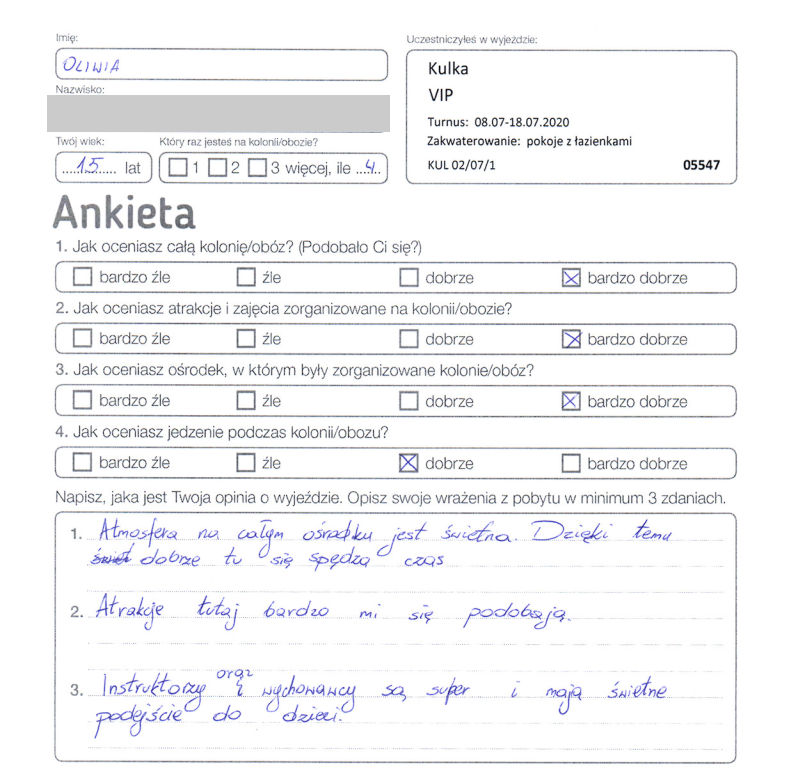 Imię:
OLIWIA
Nazwisko:
Twój wiek:
15 lat
Który raz jesteś na kolonii/obozie?
1 2 3 więcej, ile 4
Uczestniczyłeś w wyjeździe:
Kulka
VIP
Turnus: 08.07-18.07.2020
Zakwaterowanie: pokoje z łazienkami
KUL 02/07/1 05547
Ankieta
1. Jak oceniasz całą kolonię/obóz? (Podobało Ci się?)
bardzo źle źle dobrze bardzo dobrze
2. Jak oceniasz atrakcje i zajęcia zorganizowane na kolonii/obozie?
bardzo źle źle dobrze bardzo dobrze
3. Jak oceniasz ośrodek, w którym były zorganizowane kolonie/obóz?
bardzo źle źle dobrze bardzo dobrze
4. Jak oceniasz jedzenie podczas kolonii/obozu?
bardzo źle źle dobrze bardzo dobrze
Napisz, jaka jest Twoja opinia o wyjeździe. Opisz swoje wrażenia z pobytu w minimum 3 zdaniach.
1. Atmosfera na całym ośrodku jest świetna. Dzięki temu
dobrze tu się spędza czas
2. Atrakcje tutaj bardzo mi się podobają.
3. Instruktorzy oraz wychowawcy są super i mają świetne
podejście do dzieci.